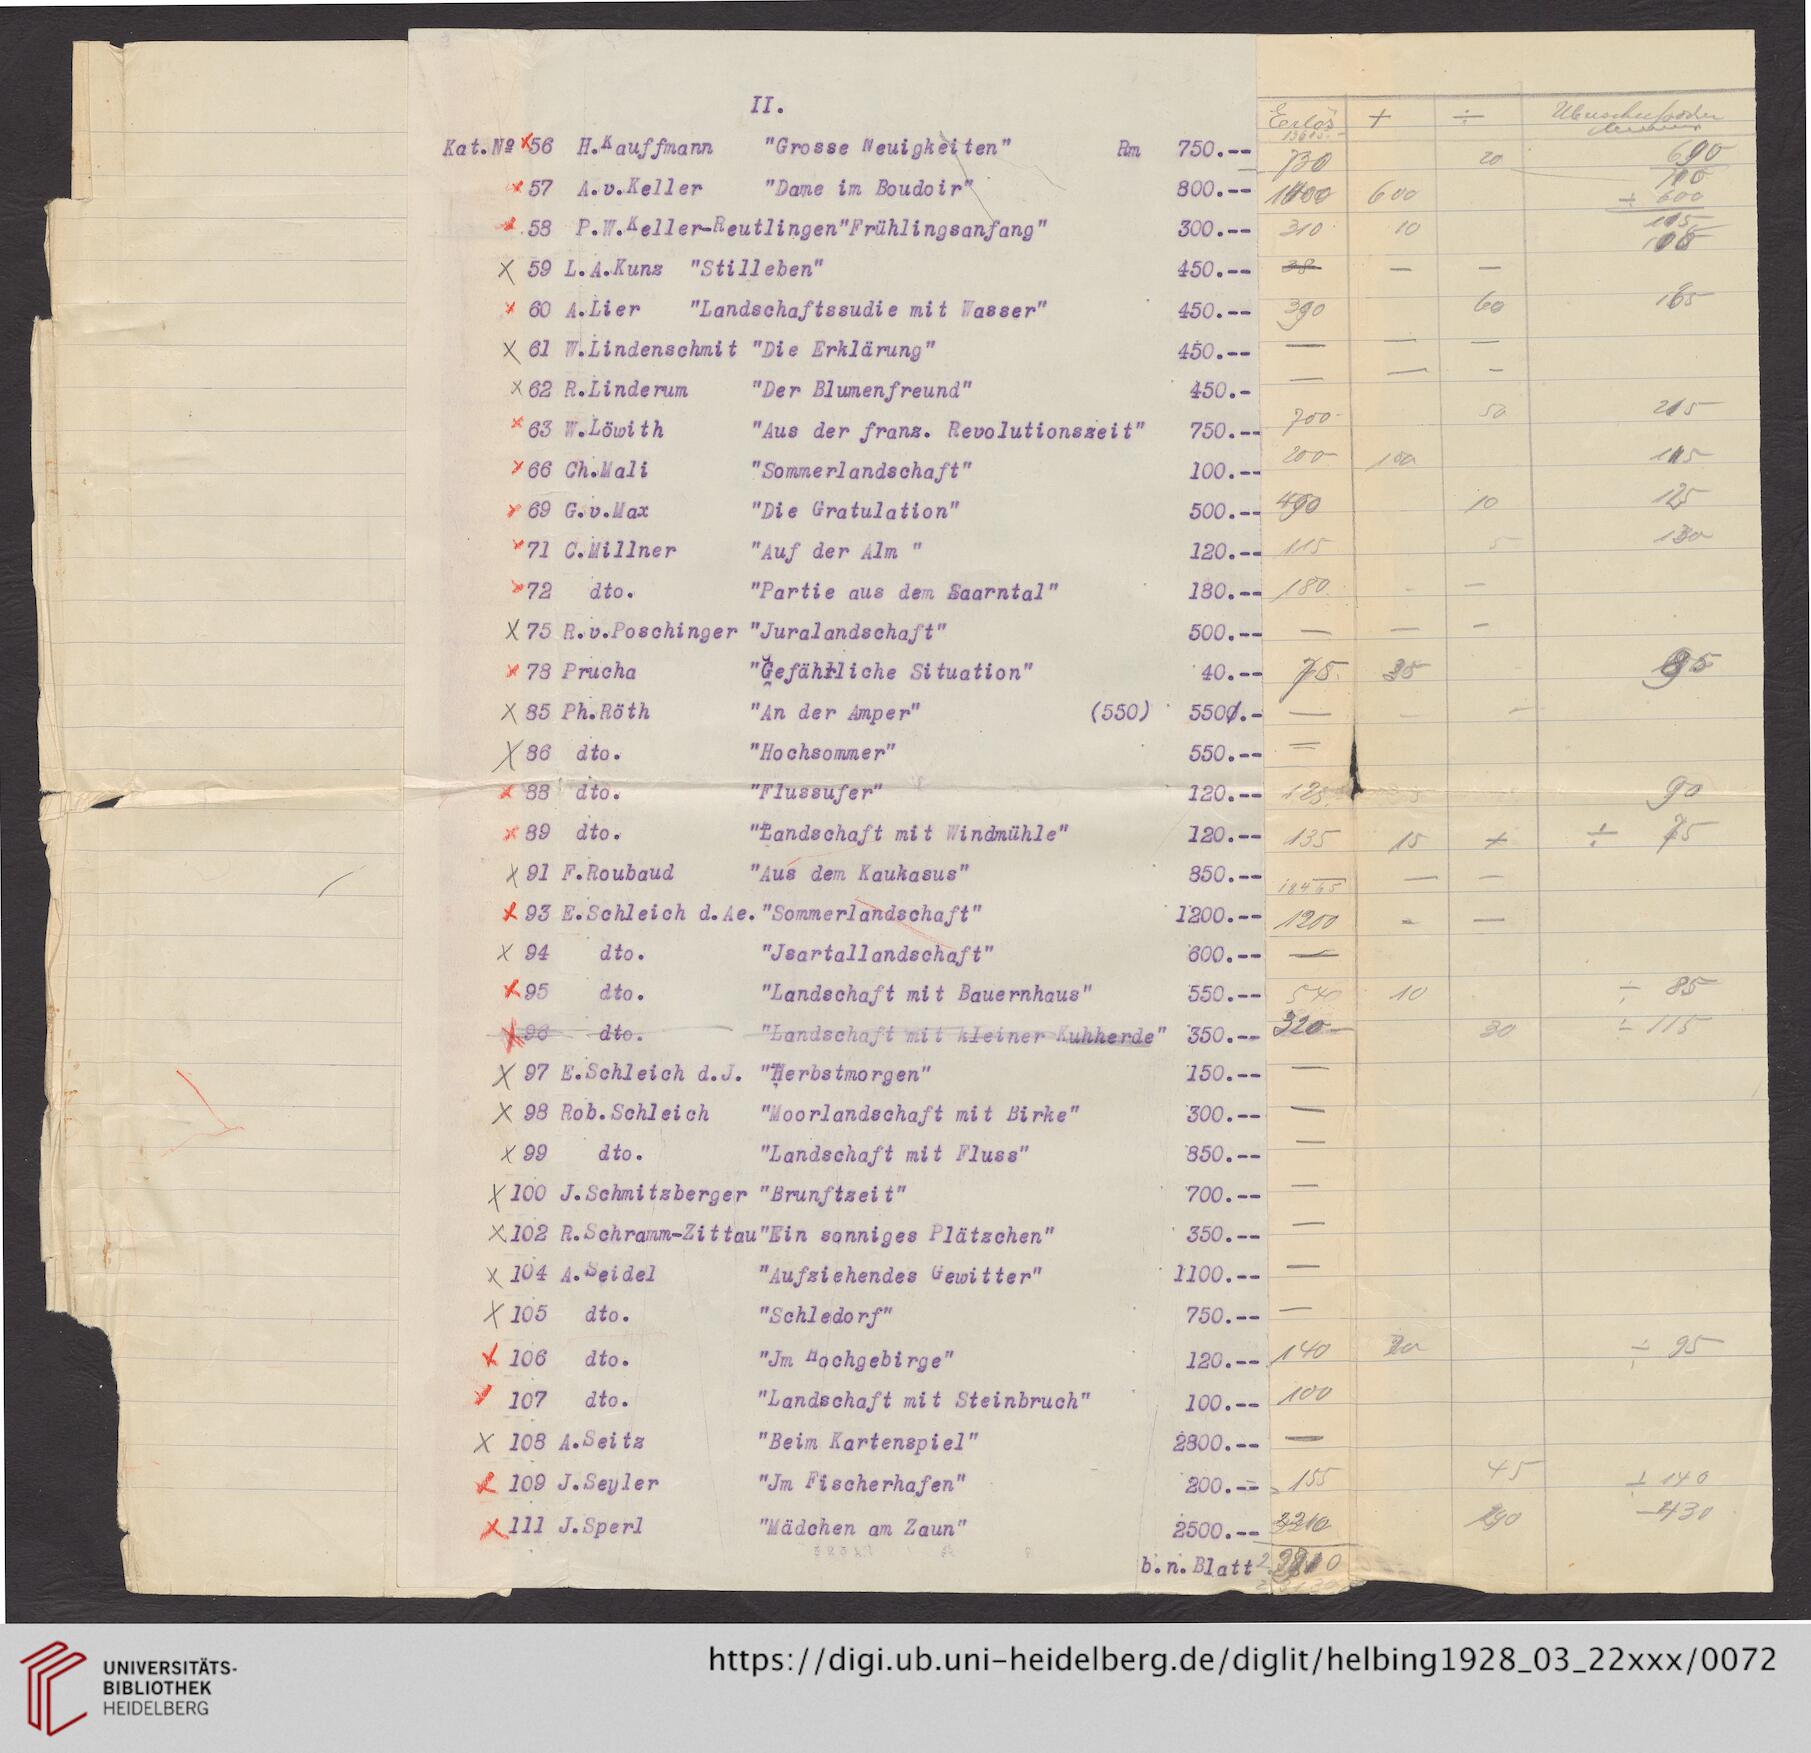 II.
Erlös + ÷
Kat.Nº 56 H.Kauffmann "Grosse Neuigkeiten" Rm 750.-- 730 20 690
57 A.v.Keller "Dame im Boudoir" 800.-- 1400 600 ÷ 600
58 P.W.Keller-Reutlingen"Frühlingsanfang" 300.-- 310 10
59 L.A.Kunz "Stilleben" 450.-- — —
60 A.Lier "Landschaftssudie mit Wasser" 450.-- 390 60 165
61 W.Lindenschmit "Die Erklärung" 450.-- — — —
62 R.Linderum "Der Blumenfreund" 450.- — — –
63 W.Löwith "Aus der franz. Revolutionszeit" 750.-- 700- 50 215
66 Ch.Mali "Sommerlandschaft" 100.-- 200 100 115
69 G.v.Max "Die Gratulation" 500.-- 490 10 125
71 C.Millner "Auf der Alm " 120.-- 115 5 130
72 dto. "Partie aus dem Saarntal" 180.-- 180. - –
75 R.v.Poschinger "Juralandschaft" 500.-- — — –
78 Prucha "Gefährliche Situation" 40.-- 75. 35 95
85 Ph.Röth "An der Amper" (550) 5500.- — – –
86 dto. "Hochsommer" 550.-- —
88 dto. "Flussufer" 120.-- 125 90
89 dto. "Landschaft mit Windmühle" 120.-- 135 15 + ÷ 75
91 F.Roubaud "Aus dem Kaukasus" 850.-- 18465 — —
93 E.Schleich d.Ae."Sommerlandschaft" 1200.-- 1200 - —
94 dto. "Jsartallandschaft" 600.-- —
95 dto. "Landschaft mit Bauernhaus" 550.-- 540 10 ÷ 85
96 dto. "Landschaft mit kleiner Kuhherde" 350.-- 320- 30 ÷ 115
97 E.Schleich d.J. "Herbstmorgen" 150.-- —
98 Rob.Schleich "Moorlandschaft mit Birke" 300.-- —
99 dto. "Landschaft mit Fluss" 850.-- —
100 J.Schmitzberger "Brunftzeit" 700.-- —
102 R.Schramm-Zittau"Ein sonniges Plätzchen" 350.-- —
104 A.Seidel "Aufziehendes Gewitter" 1100.-- —
105 dto. "Schledorf" 750.-- —
106 dto. "Jm Hochgebirge" 120.-- 140 20 ÷ 95
107 dto. "Landschaft mit Steinbruch" 100.-- 100
108 A.Seitz "Beim Kartenspiel" 2800.-- —
109 J.Seyler "Jm Fischerhafen" 200.-- 155 45 ÷ 140
111 J.Sperl "Mädchen am Zaun" 2500.-- 2210 290 -430
b.n.Blatt
UNIVERSITÄTS-
BIBLIOTHEK
HEIDELBERG
https://digi.ub.uni-heidelberg.de/diglit/helbing1928_03_22xxx/0072